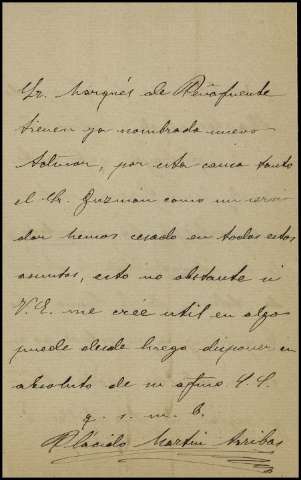 Sr. Marqués de Peñafuente
tienen ya nombrado nuevo
por esta causa tanto
el Sr. Guzmán como un servi
dor hemos cesado en todos estos
asuntos, esto no obstante si
V. E. me crée util en algo
puede desde luego disponer en
absoluto de su afmo S. S.
q. s. m. b.
Plácido Martin Arribas